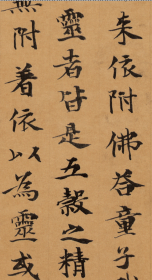 来依附佛答童子
靈者皆是五穀之精
無附着依以為靈或